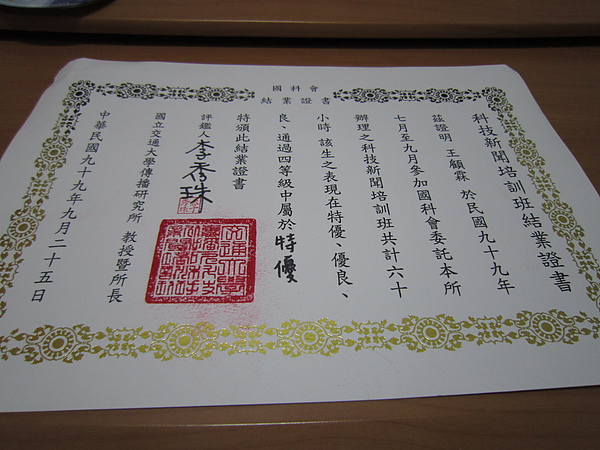 國科會
結業證書
科技新聞培訓班結業證書
茲證明 王顧霖 於民國九十九年
七月至九月參加國科會委託本所
辦理之科技新聞培訓班共計六十
小時 該生之表現在特優、優良、
良、通過四等級中屬於特優
特頒此結業證書
評鑑人 李秀珠
國立交通大學傳播研究所 教授暨所長
中華民國九十九年九月二十五日